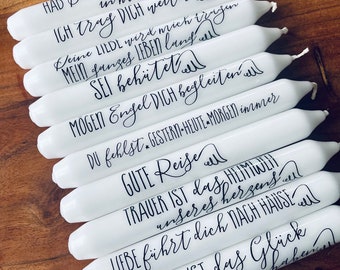 HAB
ICH trag DICH weit
Deine LIEBE wird mich tragen
MEIN ganzes LEBEN lang
SEI behütet
MÖGEN Engel DICH begleiten
DU fehlst. GESTERN-HEUTE-MORGEN immer
GUTE Reise
TRAUER IST das HEIMWEH
unseres herzens
LIEBE führt dich NACH HAUSE
IST das Glück